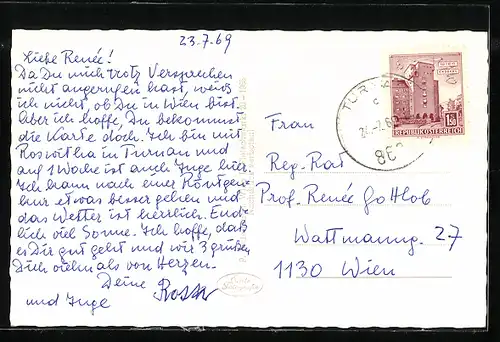 23.7.69
Liebe Renée!
Da Du mich trotz Versprechen
nicht angerufen hast, weiß
ich nicht, ob Du in Wien bist.
Aber ich hoffe, Du bekommst
die Karte doch. Ich bin mit
Roswitha in Turnau und
auf 1 Woche ist auch Inge hier.
Ich kann nach einer Röntgen-
kur etwas besser gehen und
das Wetter ist herrlich. End-
lich viel Sonne. Ich hoffe, daß
es Dir gut geht und wir 3 grüßen
Dich vielmals von Herzen.
Deine
und Inge
REPUBLIK ÖSTERREICH
Frau
Reg. Rat
Prof. Renée Gottlob
Wattmanng. 27
1130 Wien